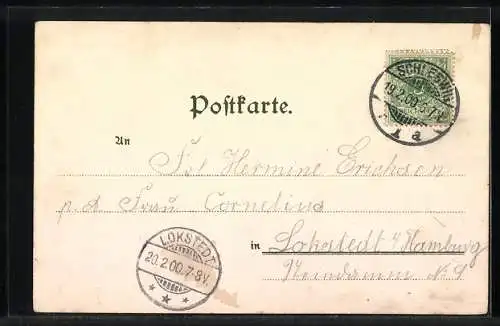 SCHLESWIG
19.2.00.6-7.V.
1 a
Postkarte.
An
Frl Hermine Erichsen
p. A Frau Cornelius
LOKSTEDT
20.2.00.7-8V.
in Lokstedt b/ Hamburg